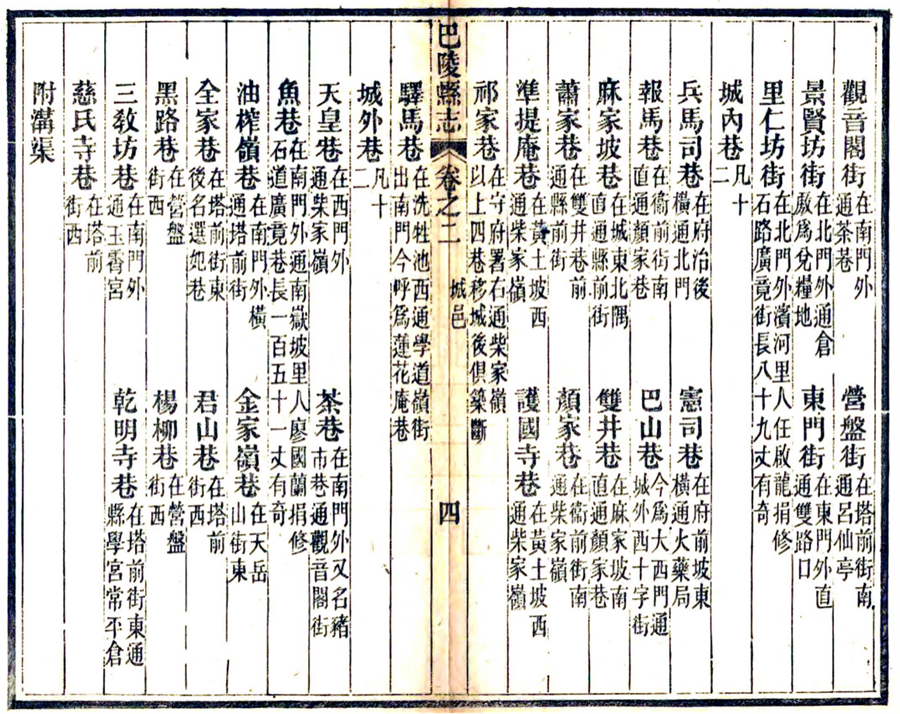 觀音閣街 在南門外通茶巷 營盤街 在塔前街南通呂仙亭
景賢坊街 在北門外通倉廒爲兌糧地 東門街 在東門外直通雙路口
里仁坊街 在北門外濱河里人任啟龍捐修石路廣竟街長八十九丈有奇
城內巷 凡十二
兵馬司巷 在府治後橫通北門 憲司巷 在府前坡東橫通火藥局
報馬巷 在衞前街南直通顏家巷 巴山巷 今爲大西門通城外西十字街
麻家坡巷 在城東北隅直通縣前街 雙井巷 在麻家坡南直通顏家巷
蕭家巷 在雙井巷前通縣前街 顏家巷 在衞前街南通柴家嶺
準提庵巷 在黃土坡西通柴家嶺 護國寺巷 在黃土坡西通柴家嶺
祁家巷 在守府署右通柴家嶺以上四巷移城後俱築斷
巴陵縣志 卷之二 城邑 四
驛馬巷 在洗牲池西通學道嶺街出南門今呼爲蓮花庵巷
城外巷 凡十二
天皇巷 在西門外通柴家嶺 茶巷 在南門外又名豬市巷通觀音閣街
魚巷 在南門外通南嶽坡里人廖國蘭捐修石道廣竟巷長一百五十一丈有奇
油榨嶺巷 在南門外橫通塔前街 金家嶺巷 在天岳山街東
全家巷 在塔前街東後名選妃巷 君山巷 在塔前街西
黑路巷 在營盤街西 楊柳巷 在營盤街西
三敎坊巷 在南門外通玉霄宮 乾明寺巷 在塔前街東通縣學宮常平倉
慈氏寺巷 在塔前街西
附溝渠